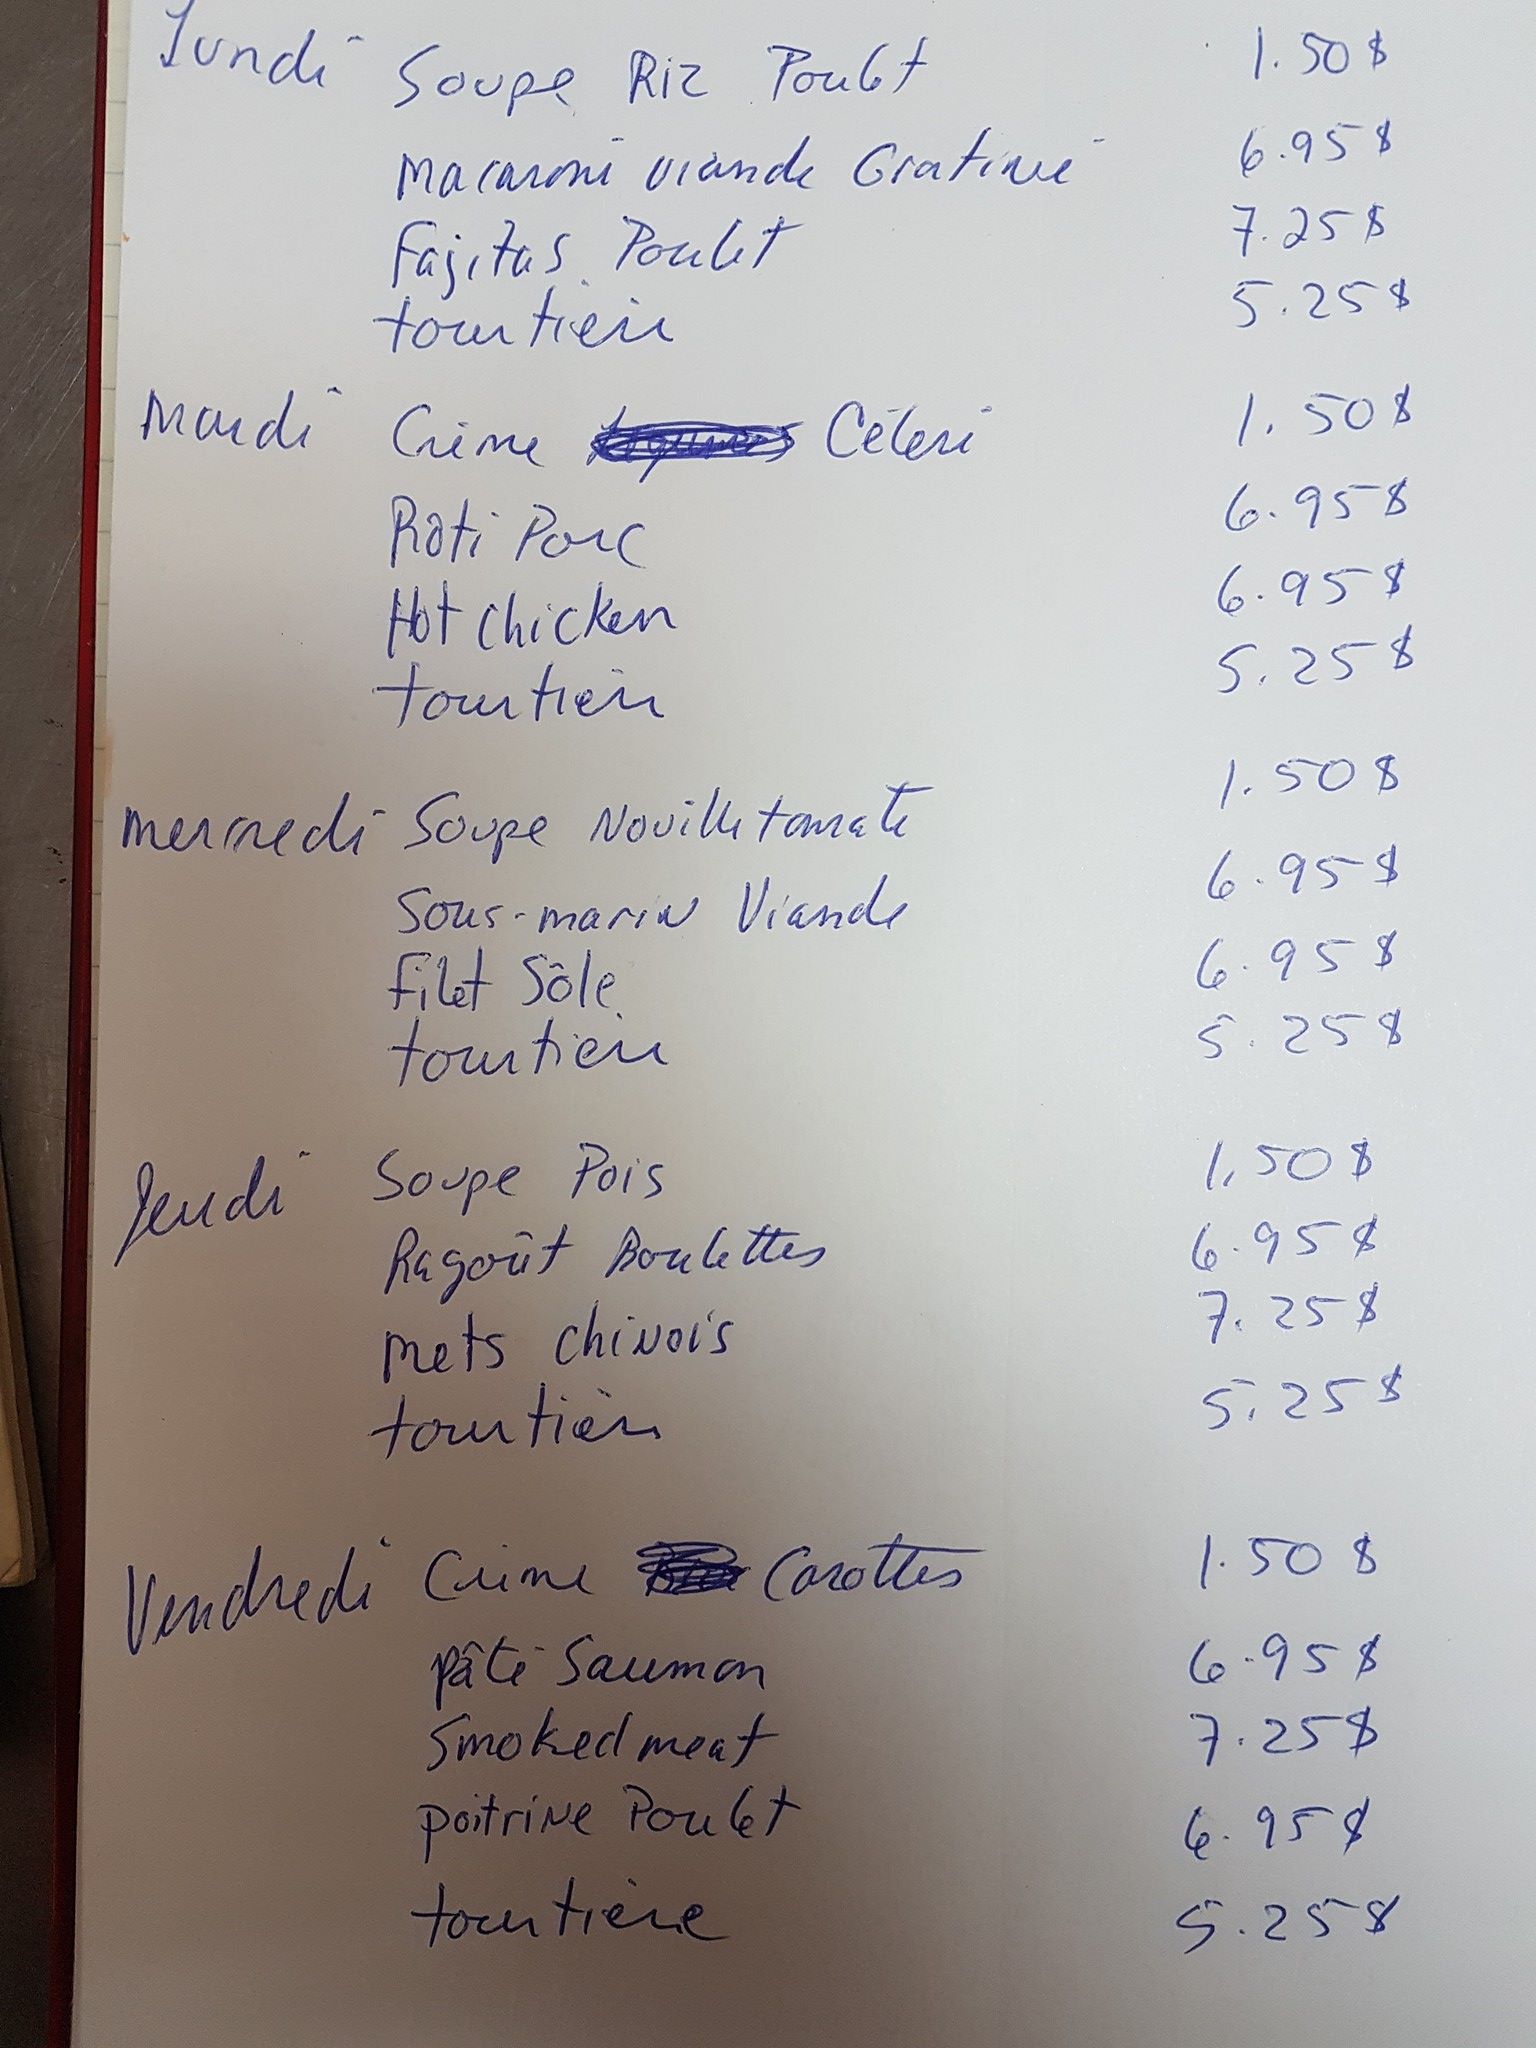 Lundi Soupe Riz Poulet 1.50$
Macaroni viande Gratiné 6.95$
Fajitas Poulet 7.25$
tourtière 5.25$
Mardi Crème Céleri 1.50$
Rôti Porc 6.95$
Hot chicken 6.95$
tourtière 5.25$
mercredi Soupe Nouille tomate 1.50$
Sous-marin Viande 6.95$
Filet Sôle 6.95$
tourtière 5.25$
Jeudi Soupe Pois 1.50$
Ragoût Boulettes 6.95$
mets chinois 7.25$
tourtière 5.25$
Vendredi Crème Carottes 1.50$
pâté Saumon 6.95$
Smoked meat 7.25$
poitrine Poulet 6.95$
tourtière 5.25$